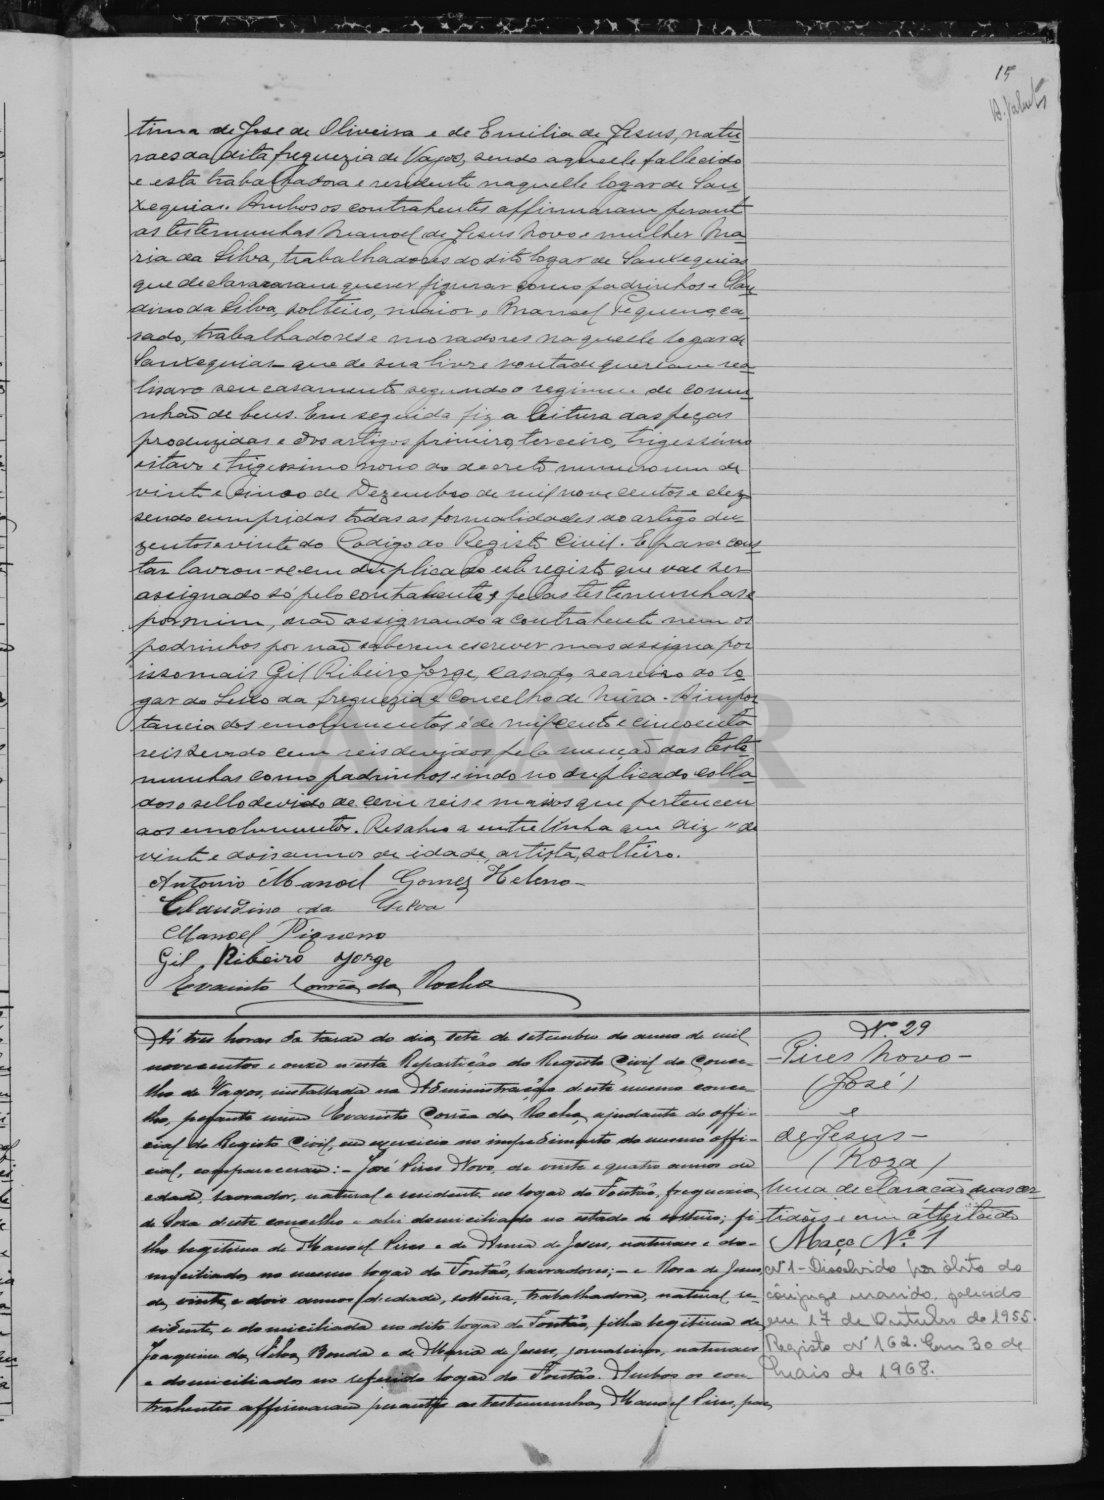 15
tima de Jose de Oliveira e de Emilia de Jesus, natu-
raes da dita freguezia de Vagos, sendo aquelle fallecido
e esta trabalhadora e residente naquelle logar de San-
xequias. Ambos os contrahentes affirmaram perante
as testemunhas Manoel de Jesus Novo e mulher Ma-
ria da Silva, trabalhadores do dito logar de Sanxequias
que declararam querer figurar como padrinhos e Clau-
dino da Silva, solteiro, maior, e Manoel Pequeno, ca-
sado, trabalhadores e moradores naquelle logar de
Sanxequias que de sua livre vontade queriam rea-
lisar o seu casamento segundo o regimen de comu-
nhão de bens. Em seguida fiz a leitura das peças
produzidas e dos artigos primeiro, terceiro, trigessimo
oitavo e trigessimo nono do decreto numero um de
vinte e cinco de Dezembro de mil nove centos e dez
sendo cumpridas todas as formalidades do artigo du-
zentos e vinte do Codigo do Registo Civil. E para cons-
tar lavrou-se em duplicado este registo que vae ser
assignado só pelo contrahente, pelas testemunhas e
por mim, não assignando a contrahente nem os
padrinhos por não saberem escrever mas assigna por
isso mais Gil Ribeiro Jorge, casado, seareiro do lo-
gar do Seixo da freguezia e concelho de Mira. A impor-
tancia dos emolumentos é de mil cento e cincoenta
reis sendo cem reis devidos pela menção das teste-
munhas como padrinhos e indo no duplicado colla-
dos o sello devido de cem reis e mais os que pertencem
aos emolumentos. Resalvo a entrelinha que diz "de
vinte e dois annos de idade, artista, solteiro.
Antonio Manoel Gomes Heleno
Claudino da Silva
Manoel Piqueno
Gil Ribeiro Jorge
Evaristo Corrêa da Rocha
Ás tres horas da tarde do dia sete de setembro do anno de mil
novecentos e onze n'esta Repartição do Registo Civil do Conce-
lho de Vagos, installada na Administração d'este mesmo conce-
lho, perante mim Evaristo Corrêa da Rocha, ajudante do offi-
cial do Registo Civil, em exercicio no impedimento do mesmo offi-
cial, compareceram: - José Pires Novo, de vinte e quatro annos de
edade, lavrador, natural e residente no logar do Fontão, freguezia
de Soza d'este concelho e ahi domiciliado no estado de solteiro; fi-
lho legitimo de Manoel Pires e de Anna de Jesus, naturaes e do-
miciliados no mesmo logar do Fontão, lavradores; - e Rosa de Jesus,
de vinte e dois annos d'edade, solteira, trabalhadora, natural, re-
sidente e domiciliada no dito logar do Fontão, filha legitima de
Joaquim da Silva Ronda e de Maria de Jesus, jornaleiros, naturaes
e domiciliados no referido logar do Fontão. Ambos os con-
trahentes affirmaram perante as testemunhas Manoel Pires, par
Nº 29
- Pires Novo -
(José)
e
de Jesus -
(Roza)
Uma declaração duas cer-
tidões e um attestado
Maço Nº 1
Nº 1 - Dissolvido por óbito do
cônjuge marido, falecido
em 17 de Outubro de 1955.
Registo Nº 162. Em 30 de
Maio de 1968.